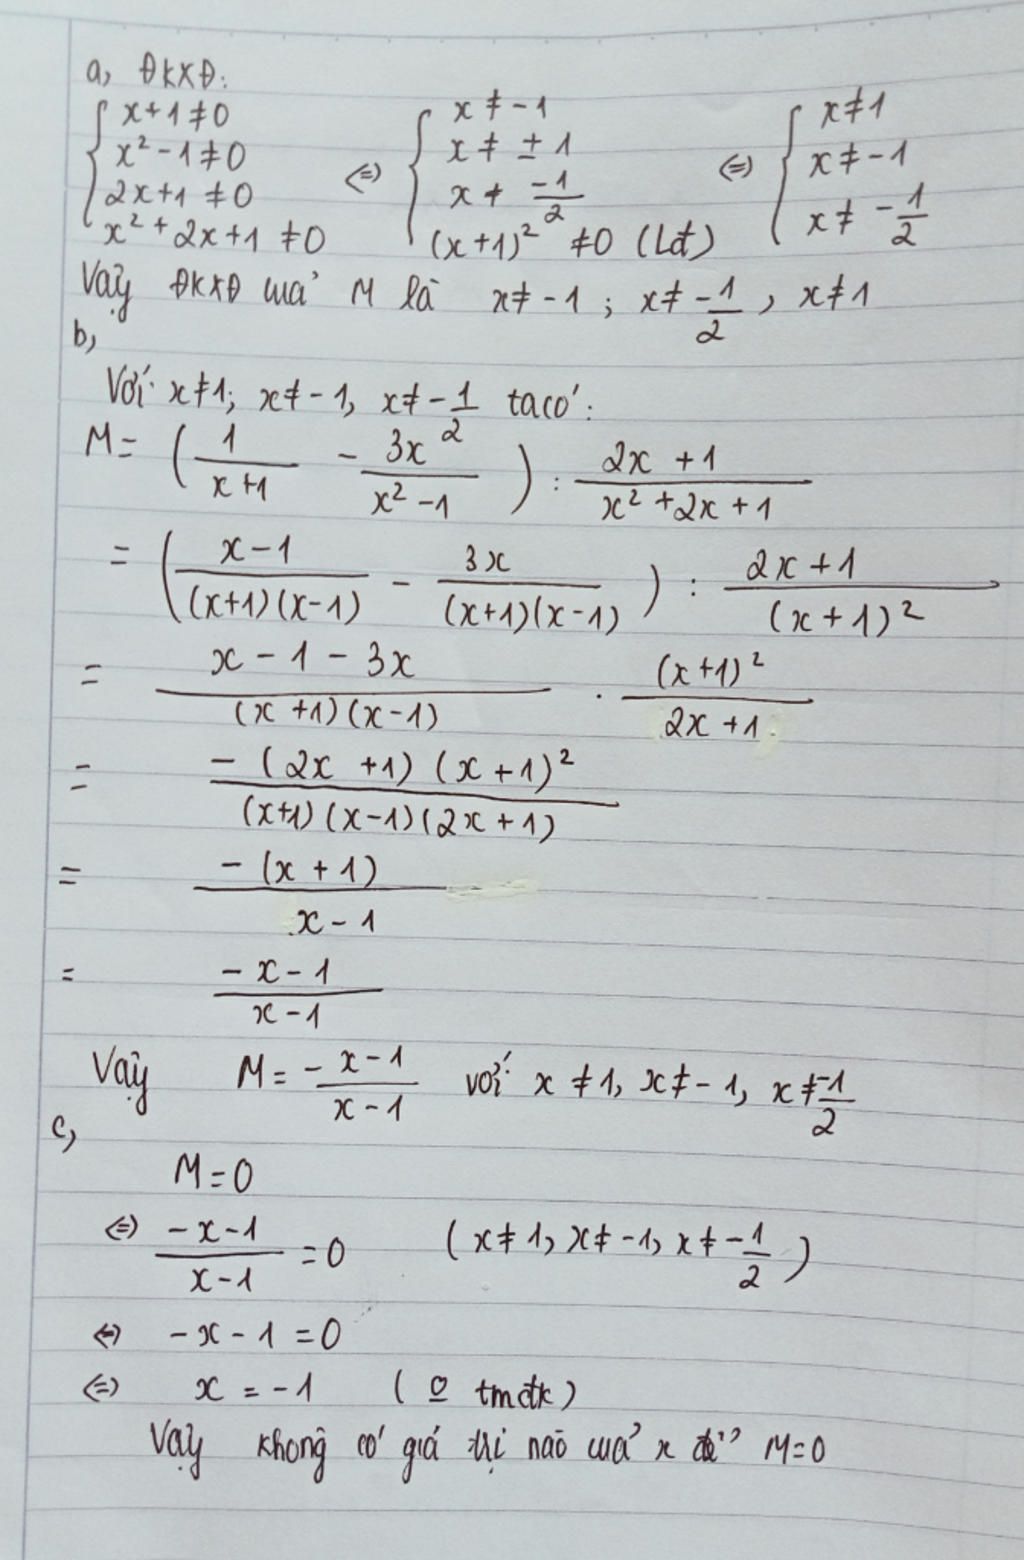 a, ĐKXĐ:
{ x+1≠0 ⇔ { x ≠ -1 ⇔ { x≠1
x²-1≠0 x ≠ ±1 x≠-1
2x+1 ≠0 x ≠ -1/2 x≠ -1/2
x²+2x+1 ≠0 (x+1)² ≠0 (Lđ)
Vậy ĐKXĐ của M là x≠-1; x≠-1/2, x≠1
b,
Với x≠1; x≠-1, x≠-1/2 ta có:
M= (1/(x+1) - 3x/(x²-1)) : (2x+1)/(x²+2x+1)
= ((x-1)/((x+1)(x-1)) - 3x/((x+1)(x-1))) : (2x+1)/(x+1)²
= (x-1-3x)/((x+1)(x-1)) . (x+1)²/(2x+1)
= -(2x+1)(x+1)²/((x+1)(x-1)(2x+1))
= -(x+1)/(x-1)
= (-x-1)/(x-1)
Vậy M= (-x-1)/(x-1) với x≠1, x≠-1, x≠-1/2
c,
M=0
⇔ (-x-1)/(x-1) =0 (x≠1, x≠-1, x≠-1/2)
⇔ -x-1=0
⇔ x = -1 (o tmđk)
Vậy không có giá trị nào của x để M=0